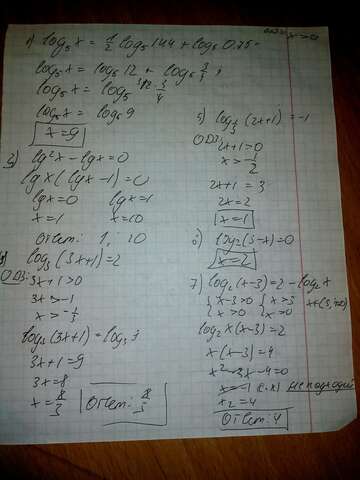 1) log₅x = 1/2 log₅144 + log₅0.75
x>0
log₅x = log₅12 + log₅ 3/4;
log₅x = log₅ 12·3/4
log₅x = log₅9
x=9
3) lg²x - lgx = 0
lgx(lgx - 1) = 0
lgx=0 lgx=1
x=1 x=10
Ответ: 1; 10
log₃(3x+1)=2
ОДЗ: 3x+1>0
3x>-1
x>-1/3
log₃(3x+1)=log₃9
3x+1=9
3x=8
x=8/3
Ответ: 8/3
5) log1/3(2x+1)=-1
ОДЗ:
2x+1>0
x>-1/2
2x+1=3
2x=2
x=1
6) log₂(3-x)=0
x=2
7) log₂(x-3)=2-log₂x
{x-3>0 {x>3 x∈(3;∞)
{x>0 {x>0
log₂x(x-3)=2
x(x-3)=4
x²-3x-4=0
x₁=-1 не подходит
x₂=4
Ответ: 4